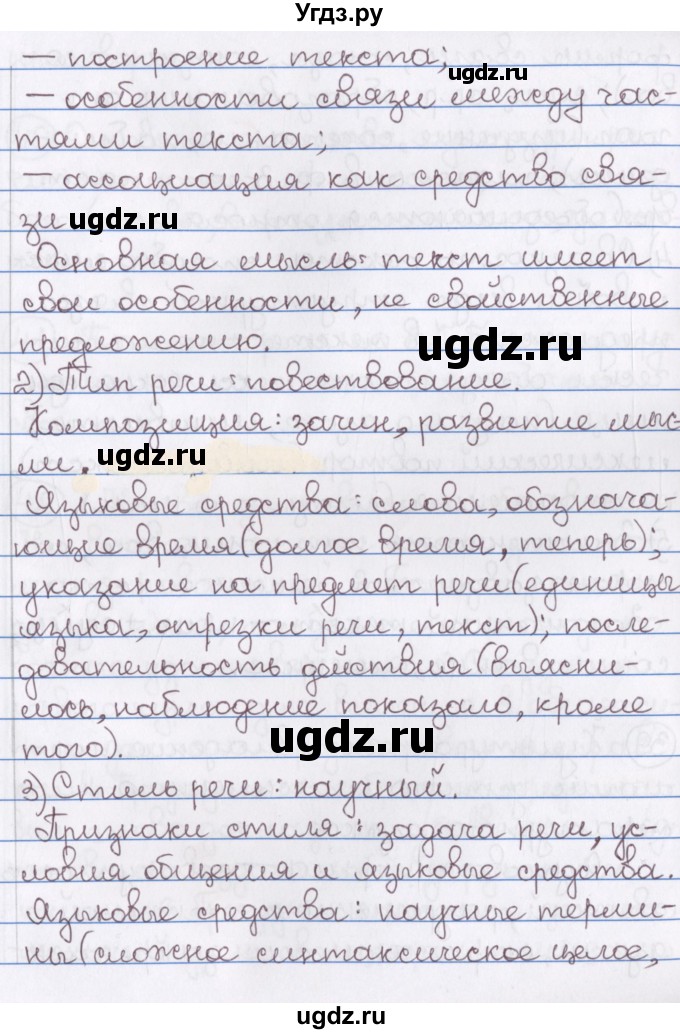 Угдз.ру
— построение текста;
— особенности связи между час-
тями текста;
— ассоциация как средство свя-
зи.
Основная мысль: текст имеет
свои особенности, не свойственные
предложению.
2) Тип речи: повествование.
Композиция: зачин, развитие мыс-
ли.
Языковые средства: слова, обознача-
ющие время (долгое время, теперь);
указание на предмет речи (единицы
языка, отрезки речи, текст); после-
довательность действия (выясни-
лось, наблюдение показало, кроме
того).
3) Стиль речи: научный.
Признаки стиля: задача речи, ус-
ловия общения и языковые средства.
Языковые средства: научные терми-
ны (сложное синтаксическое целое,
ugdz.ru
ugdz.ru
ugdz.ru
ugdz.ru
ugdz.ru
ugdz.ru
ugdz.ru